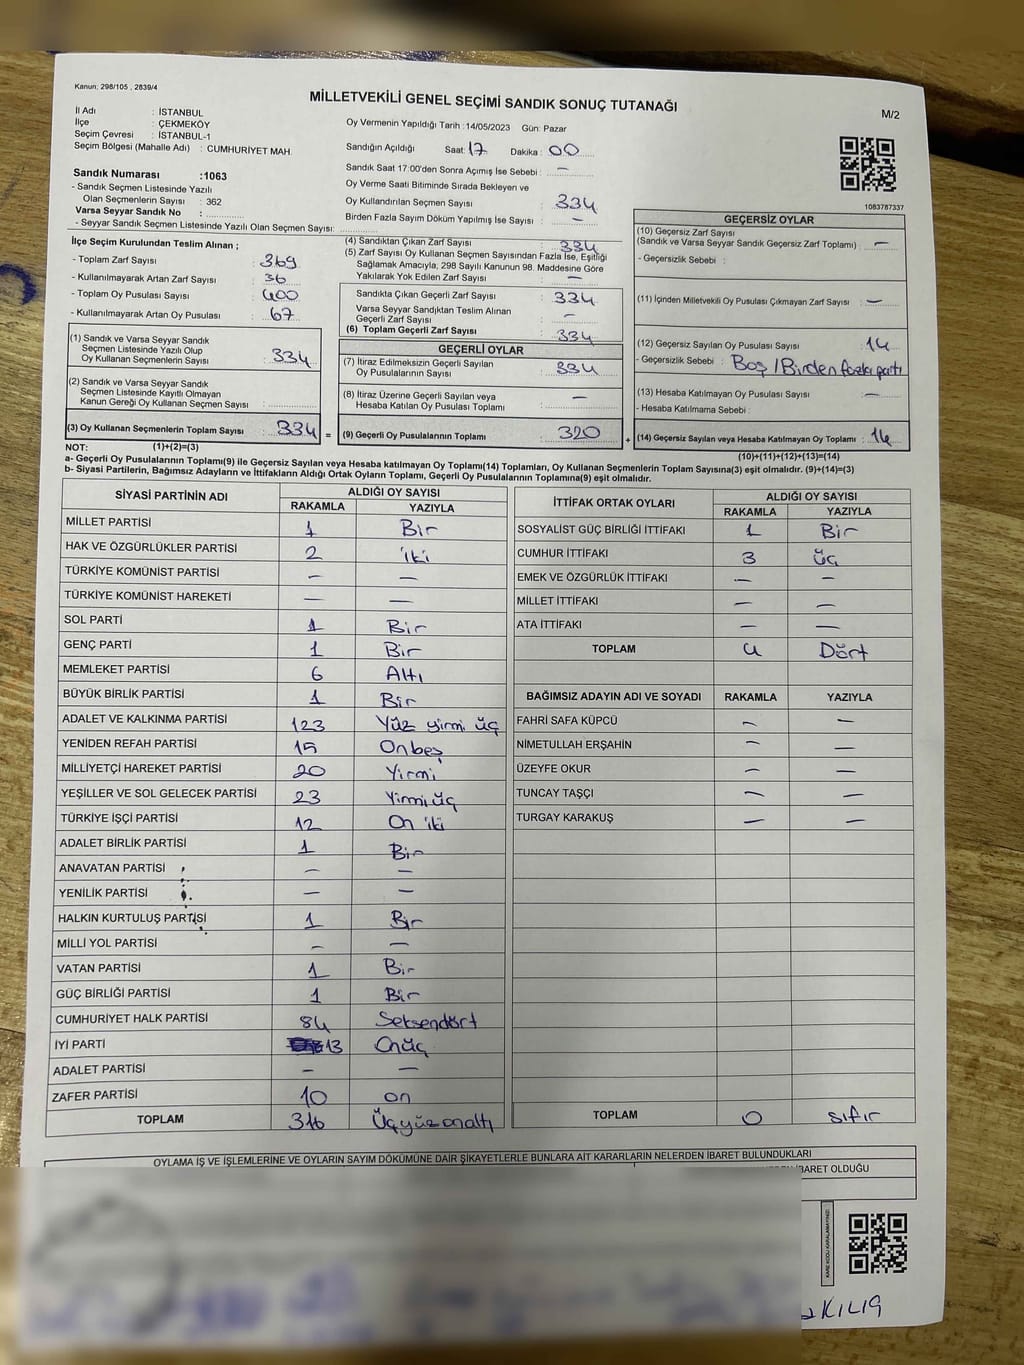 Kanun: 298/105 , 2839/4
MİLLETVEKİLİ GENEL SEÇİMİ SANDIK SONUÇ TUTANAĞI
M/2
İl Adı : İSTANBUL
İlçe : ÇEKMEKÖY
Seçim Çevresi : İSTANBUL-1
Seçim Bölgesi (Mahalle Adı) : CUMHURİYET MAH.
Sandık Numarası :1063
- Sandık Seçmen Listesinde Yazılı
Olan Seçmenlerin Sayısı : 362
Varsa Seyyar Sandık No :
- Seyyar Sandık Seçmen Listesinde Yazılı Olan Seçmen Sayısı:
Oy Vermenin Yapıldığı Tarih : 14/05/2023 Gün: Pazar
Sandığın Açıldığı Saat: 17 Dakika : 00
Sandık Saat 17:00'den Sonra Açımış İse Sebebi : —
Oy Verme Saati Bitiminde Sırada Bekleyen ve
Oy Kullandırılan Seçmen Sayısı : 334
Birden Fazla Sayım Döküm Yapılmış İse Sayısı : —
1083787337
İlçe Seçim Kurulundan Teslim Alınan ;
- Toplam Zarf Sayısı : 369
- Kullanılmayarak Artan Zarf Sayısı : 36
- Toplam Oy Pusulası Sayısı : 400
- Kullanılmayarak Artan Oy Pusulası : 67
(1) Sandık ve Varsa Seyyar Sandık
Seçmen Listesinde Yazılı Olup
Oy Kullanan Seçmenlerin Sayısı : 334
(2) Sandık ve Varsa Seyyar Sandık
Seçmen Listesinde Kayıtlı Olmayan
Kanun Gereği Oy Kullanan Seçmen Sayısı :
(3) Oy Kullanan Seçmenlerin Toplam Sayısı : 334
(4) Sandıktan Çıkan Zarf Sayısı : 334
(5) Zarf Sayısı Oy Kullanan Seçmen Sayısından Fazla İse, Eşitliği
Sağlamak Amacıyla, 298 Sayılı Kanunun 98. Maddesine Göre
Yakılarak Yok Edilen Zarf Sayısı : —
Sandıkta Çıkan Geçerli Zarf Sayısı : 334
Varsa Seyyar Sandıktan Teslim Alınan
Geçerli Zarf Sayısı : —
(6) Toplam Geçerli Zarf Sayısı : 334
GEÇERLİ OYLAR
(7) İtiraz Edilmeksizin Geçerli Sayılan
Oy Pusulalarının Sayısı : 334
(8) İtiraz Üzerine Geçerli Sayılan veya
Hesaba Katılan Oy Pusulası Toplamı : —
= (9) Geçerli Oy Pusulalarının Toplamı : 320
GEÇERSİZ OYLAR
(10) Geçersiz Zarf Sayısı
(Sandık ve Varsa Seyyar Sandık Geçersiz Zarf Toplamı) : —
- Geçersizlik Sebebi :
(11) İçinden Milletvekili Oy Pusulası Çıkmayan Zarf Sayısı : —
(12) Geçersiz Sayılan Oy Pusulası Sayısı : 14
- Geçersizlik Sebebi : Boş / Birden fazla parti
(13) Hesaba Katılmayan Oy Pusulası Sayısı : —
- Hesaba Katılmama Sebebi :
+ (14) Geçersiz Sayılan veya Hesaba Katılmayan Oy Toplamı : 14
NOT: (1)+(2)=(3)
(10)+(11)+(12)+(13)=(14)
a- Geçerli Oy Pusulalarının Toplamı(9) ile Geçersiz Sayılan veya Hesaba katılmayan Oy Toplamı(14) Toplamları, Oy Kullanan Seçmenlerin Toplam Sayısına(3) eşit olmalıdır. (9)+(14)=(3)
b- Siyasi Partilerin, Bağımsız Adayların ve İttifakların Aldığı Ortak Oyların Toplamı, Geçerli Oy Pusulalarının Toplamına(9) eşit olmalıdır.
SİYASİ PARTİNİN ADI ALDIĞI OY SAYISI
RAKAMLA YAZIYLA
MİLLET PARTİSİ 1 Bir
HAK VE ÖZGÜRLÜKLER PARTİSİ 2 iki
TÜRKİYE KOMÜNİST PARTİSİ — —
TÜRKİYE KOMÜNİST HAREKETİ — —
SOL PARTİ 1 Bir
GENÇ PARTİ 1 Bir
MEMLEKET PARTİSİ 6 Altı
BÜYÜK BİRLİK PARTİSİ 1 Bir
ADALET VE KALKINMA PARTİSİ 123 Yüz yirmi üç
YENİDEN REFAH PARTİSİ 15 Onbeş
MİLLİYETÇİ HAREKET PARTİSİ 20 Yirmi
YEŞİLLER VE SOL GELECEK PARTİSİ 23 Yirmi üç
TÜRKİYE İŞÇİ PARTİSİ 12 On iki
ADALET BİRLİK PARTİSİ 1 Bir
ANAVATAN PARTİSİ — —
YENİLİK PARTİSİ — —
HALKIN KURTULUŞ PARTİSİ 1 Bir
MİLLİ YOL PARTİSİ — —
VATAN PARTİSİ 1 Bir
GÜÇ BİRLİĞİ PARTİSİ 1 Bir
CUMHURİYET HALK PARTİSİ 84 Seksendört
İYİ PARTİ 13 Onüç
ADALET PARTİSİ — —
ZAFER PARTİSİ 10 on
TOPLAM 316 Üçyüzonaltı
İTTİFAK ORTAK OYLARI ALDIĞI OY SAYISI
RAKAMLA YAZIYLA
SOSYALİST GÜÇ BİRLİĞİ İTTİFAKI 1 Bir
CUMHUR İTTİFAKI 3 üç
EMEK VE ÖZGÜRLÜK İTTİFAKI — —
MİLLET İTTİFAKI — —
ATA İTTİFAKI — —
TOPLAM 4 Dört
BAĞIMSIZ ADAYIN ADI VE SOYADI RAKAMLA YAZIYLA
FAHRİ SAFA KÜPCÜ — —
NİMETULLAH ERŞAHİN — —
ÜZEYFE OKUR — —
TUNCAY TAŞÇI — —
TURGAY KARAKUŞ — —
TOPLAM 0 sıfır
OYLAMA İŞ VE İŞLEMLERİNE VE OYLARIN SAYIM DÖKÜMÜNE DAİR ŞİKAYETLERLE BUNLARA AİT KARARLARIN NELERDEN İBARET BULUNDUKLARI
İBARET OLDUĞU
KARE KODU KARALAMAYINIZ!